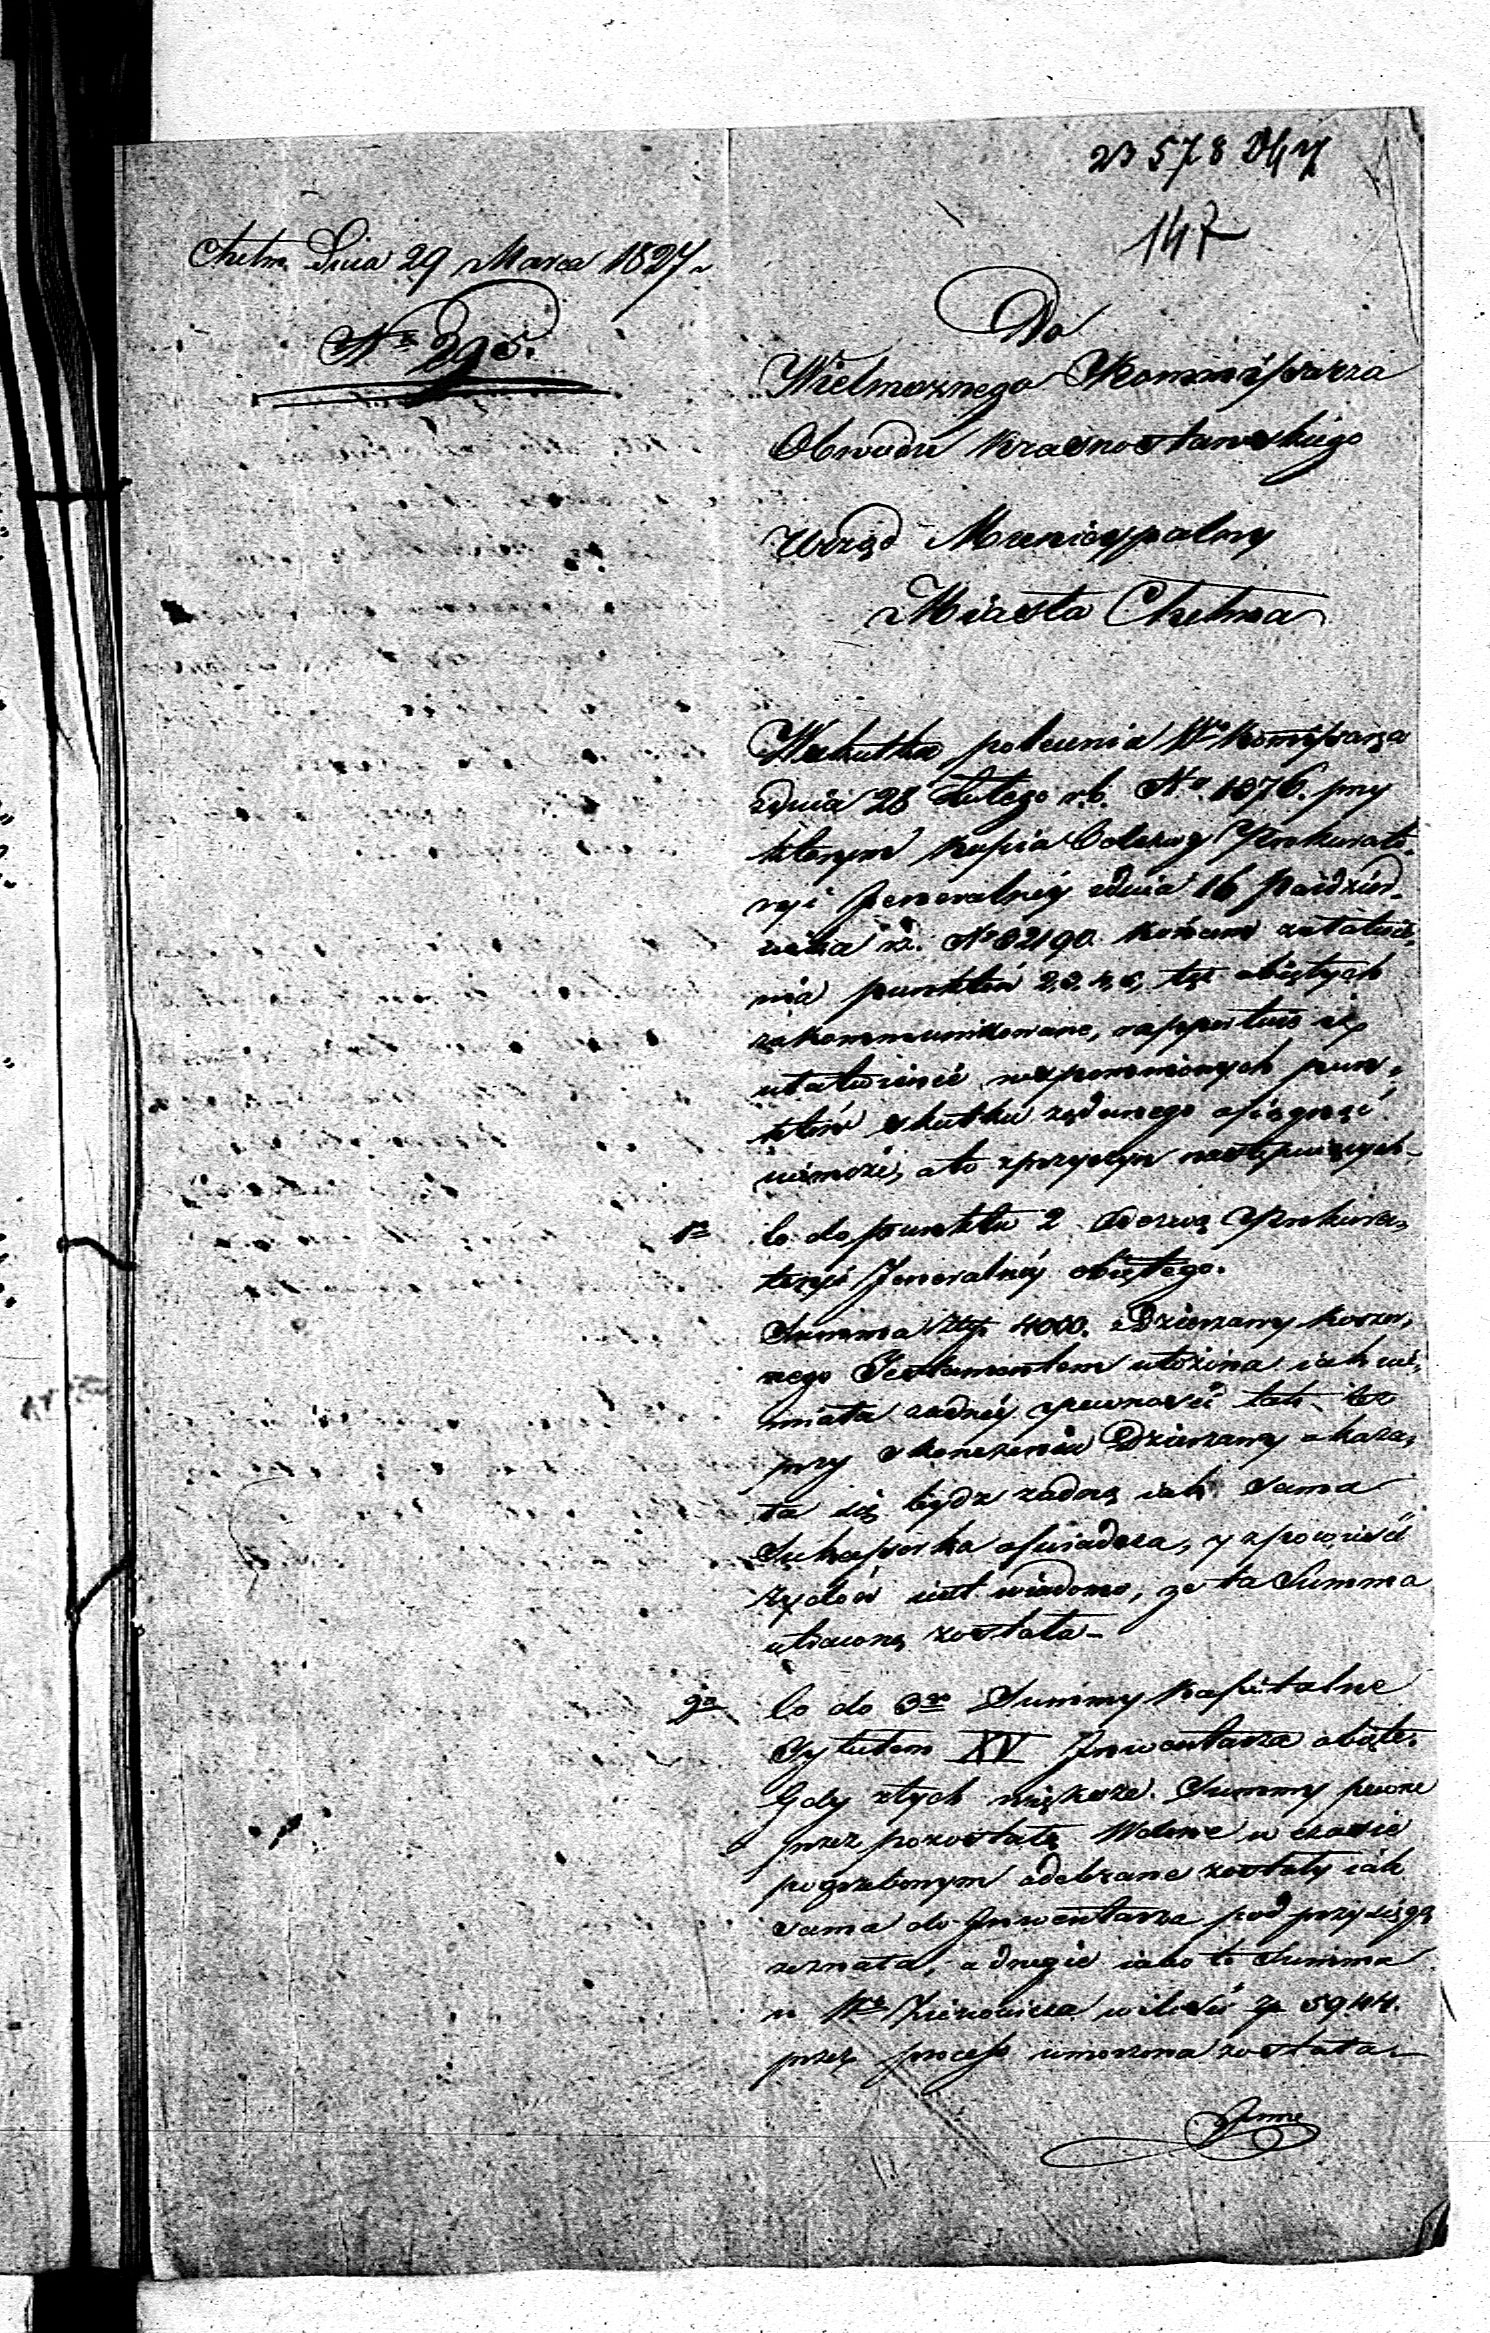 23578
147
Chełm Dnia 29 Marca 1827
No 295.
Do
Wielmożnego Kommissarza
Obwodu Krasnostawskiego
Urząd Municypalny
Miasta Chełma
Wskutku polecenia Wo Kommissarza
zdnia 28 Lutego r.b. No 1076. przy
którym kopia Odezwy Prokurato-
ryi Jeneralnéy zdnia 16 Paździer-
nika No 32190. końcem załatwie-
nia punktów 2, 3, 4, tęż obiętych
zakommunikowane, rapportuie iż
ułatwienie wspomnionych pun-
któw skutku żądanego osiągnąć
niemoże, ato zprzyczyn następuiących
1o Co do punktu 2 Odezwą Prokura-
toryi Jeneralnéy obiętego.
Summa Złp 4000. Dzierżawy koszer-
nego Testamentem ułożona iak nie-
miała żadnéy pewności tak też
przy skończeniu Dzierżawy okaza-
ła się bydź żadną iak sama
oświadcza, y zpowieści
żydów iest wiadomo, że ta Summa
utraconą została
2o Co do 3go Summy kapitalne
Tytułem XV Inwentarza obięte.
Gdy ztych większe Summy pewne
przez pozostałą Wdowę w czasie
pogrzebowym odebrane zostały iak
sama do Inwentarza pod przysięgą
zeznała, a drugie iako to Summa
u wilości Zp 5944.
przez process umorzona została
Inne